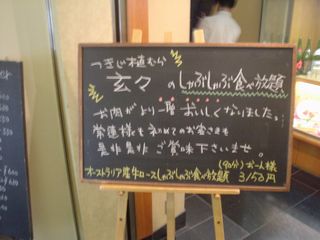 つきじ植むら
玄々のしゃぶしゃぶ食べ放題
お肉がより一層おいしくなりました。
常連様も初めてのお客さまも
是非是非ご賞味下さいませ。
(90分)お一人様
オーストラリア産牛ロースしゃぶしゃぶ食べ放題 3150円